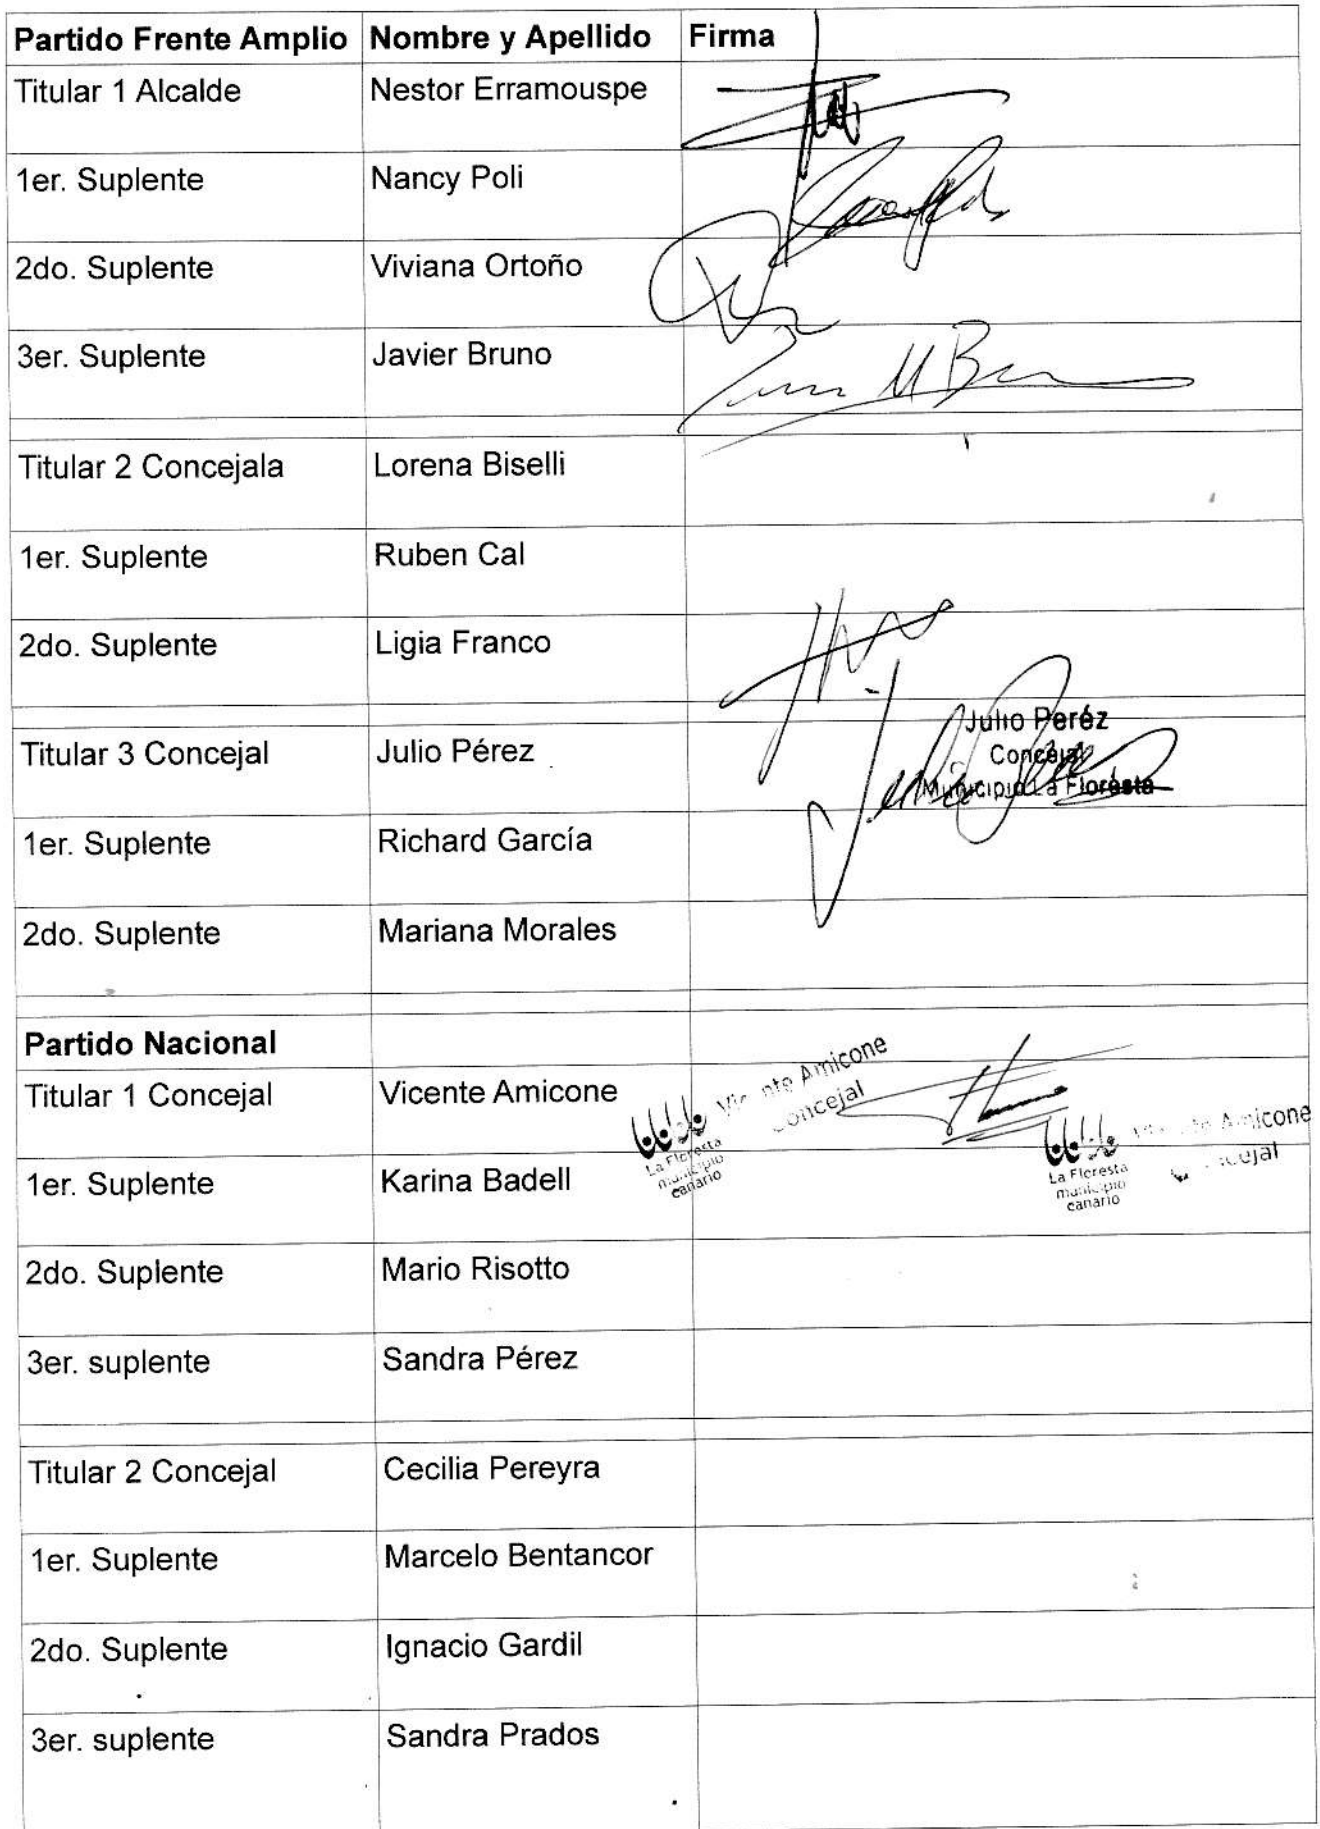 Partido Frente Amplio Nombre y Apellido Firma
Titular 1 Alcalde Nestor Erramouspe
1er. Suplente Nancy Poli
2do. Suplente Viviana Ortoño
3er. Suplente Javier Bruno
Titular 2 Concejala Lorena Biselli
1er. Suplente Ruben Cal
2do. Suplente Ligia Franco
Titular 3 Concejal Julio Pérez
Julio Peréz
Concejal
Municipio La Floresta
1er. Suplente Richard García
2do. Suplente Mariana Morales
Partido Nacional
Titular 1 Concejal Vicente Amicone
Amicone
Concejal
La Floresta
municipio
canario
Amicone
La Floresta
municipio
canario
1er. Suplente Karina Badell
2do. Suplente Mario Risotto
3er. suplente Sandra Pérez
Titular 2 Concejal Cecilia Pereyra
1er. Suplente Marcelo Bentancor
2do. Suplente Ignacio Gardil
3er. suplente Sandra Prados